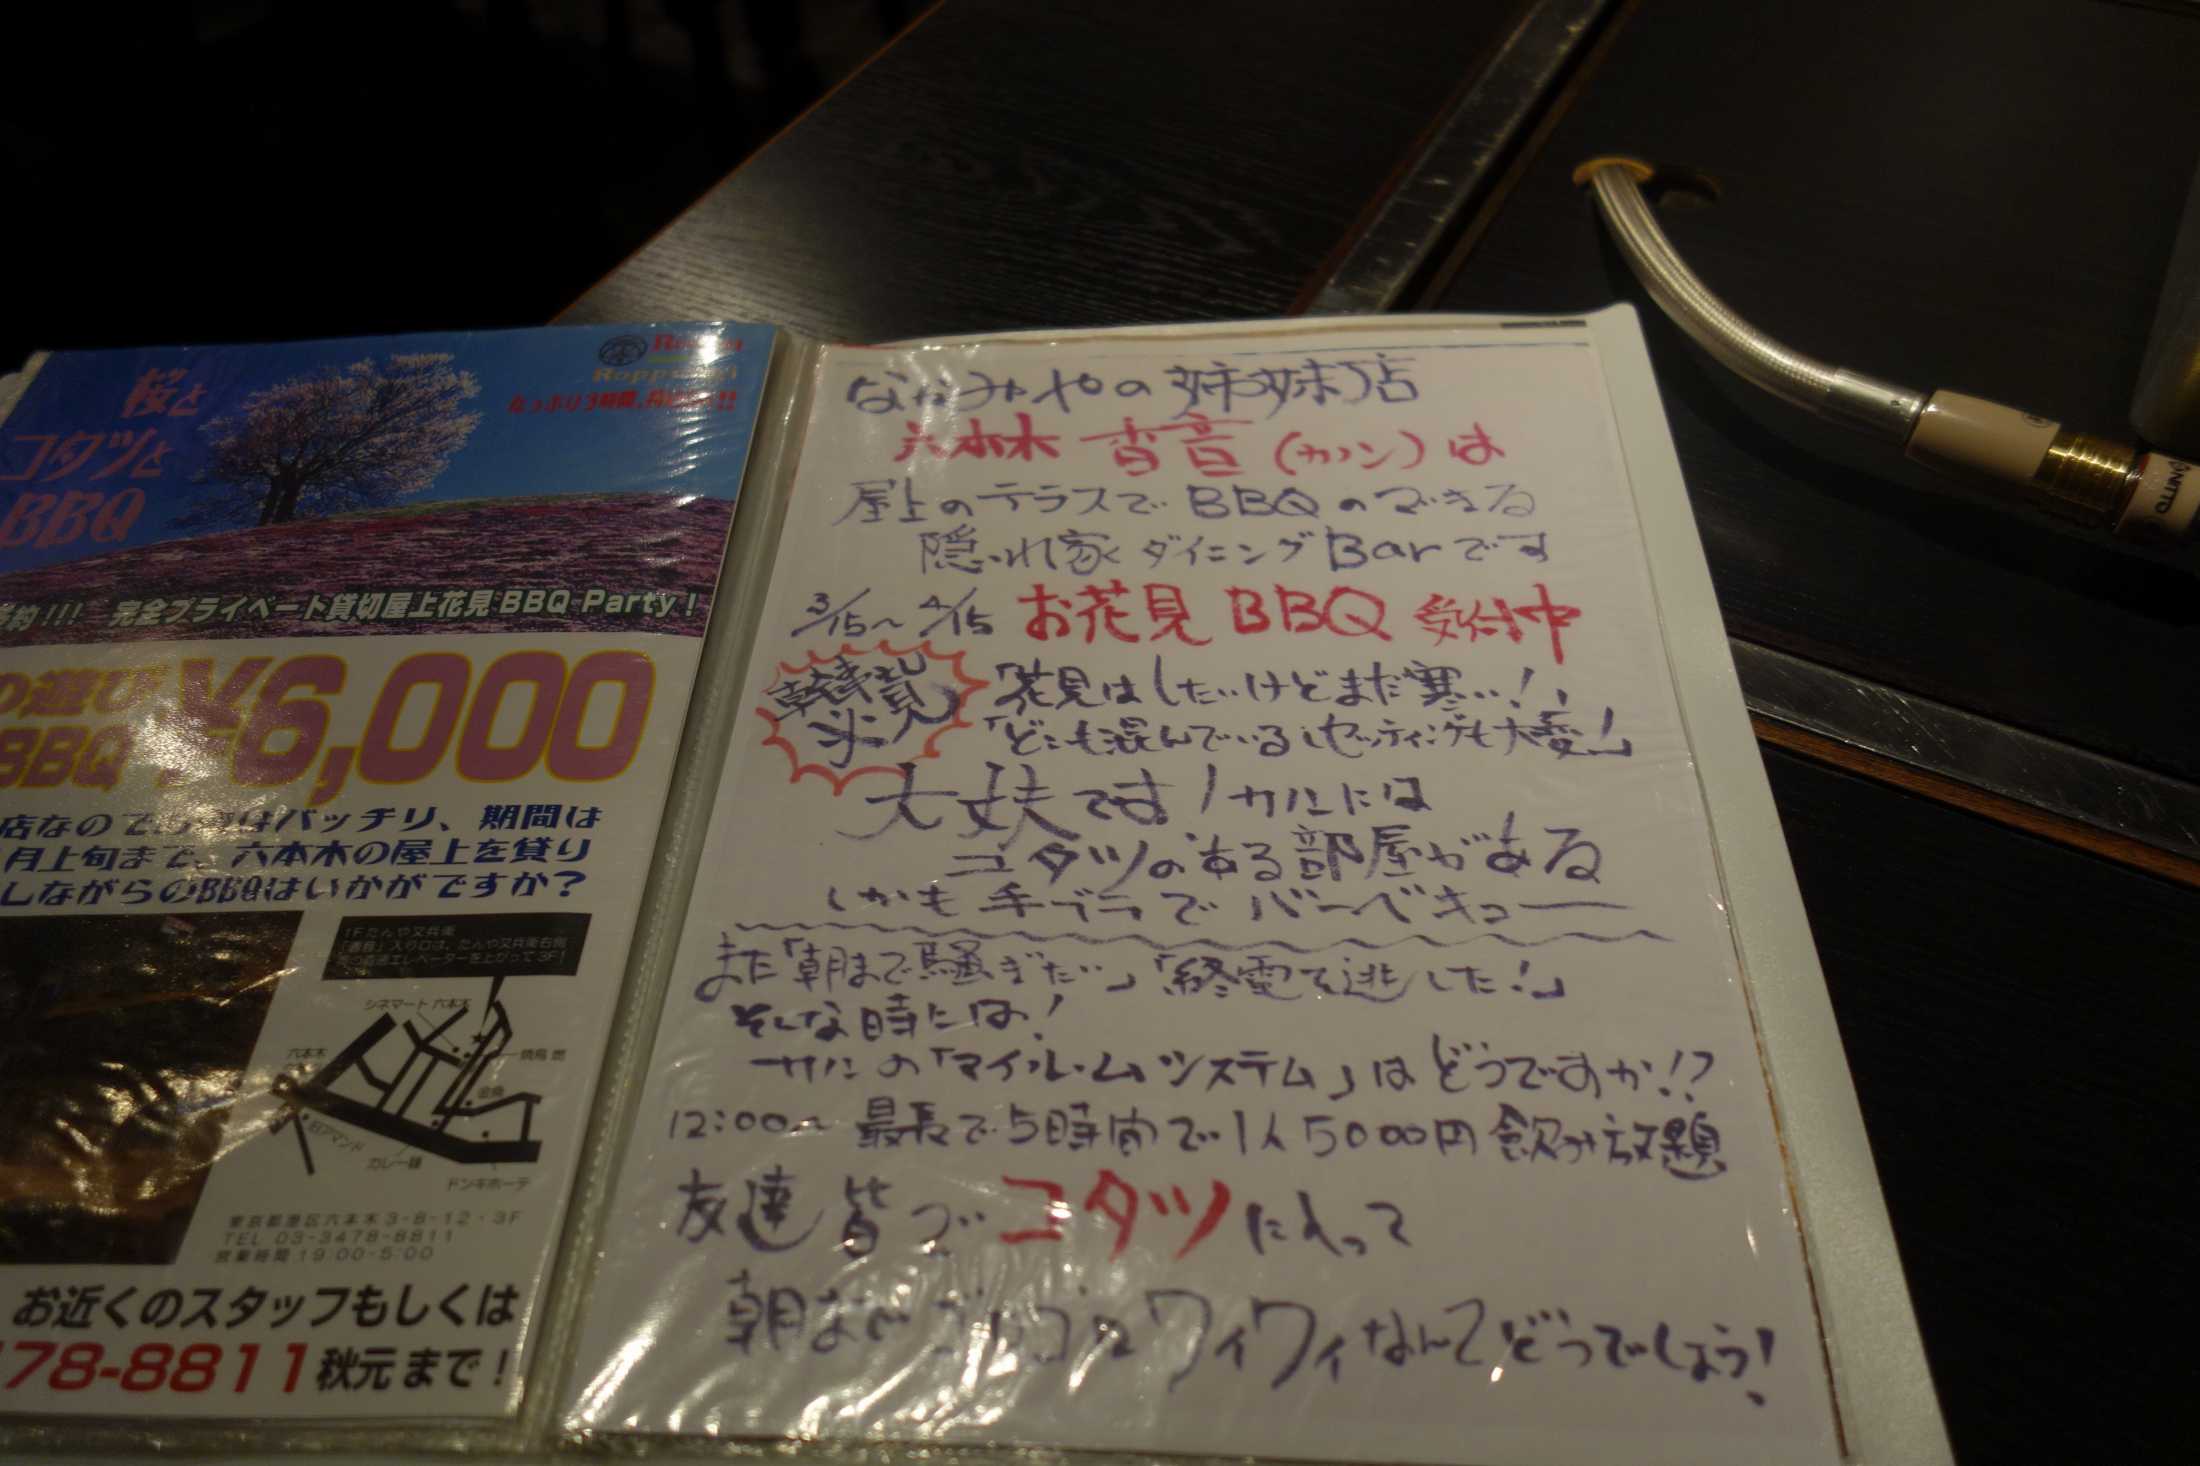 桜と
コタツと
BBQ
たっぷり3時間、
予約!!! 完全プライベート貸切屋上花見BBQ Party!
の遊び
BBQ ¥6,000
店なので
はバッチリ、期間は
月上旬まで、六本木の屋上を貸り
しながらのBBQはいかがですか?
1Fたんや又兵衛
シネマート六本木
六本木
焼鳥 燃
旧アマンド
カレー麺
ドンキホーテ
東京都港区六本木3-8-12・3F
TEL 03-3478-8811
営業時間 19:00-5:00
お近くのスタッフもしくは
78-8811 秋元まで!
なかみやの姉妹店
六本木 香音(カノン)は
屋上のテラスでBBQのできる
隠れ家ダイニングBarです
3/15~4/15 お花見BBQ受付中
「花見はしたいけどまだ寒い!」
「どこも混んでいるしセッティングも大変!」
大丈夫です!
には
コタツのある部屋がある
しかも手ブラでバーベキュー
また「朝まで騒ぎたい」「終電を逃した!」
そんな時には!
「マイルームシステム」はどうですか!?
12:00~最長で5時間で1人5000円飲み放題
友達皆でコタツに入って
朝までゴロゴロワイワイなんてどうでしょう!